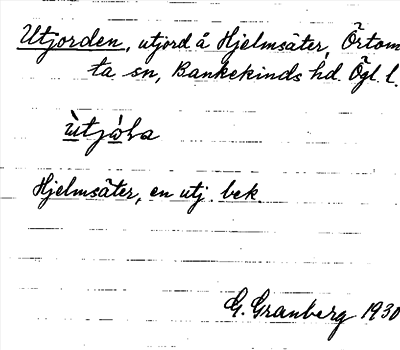 Utjorden, utjord å Hjelmsäter, Örtom
ta sn, Bankekinds hd. Ögl. l.
Hjelmsäter, en utj. bek.
G. Granberg 1930